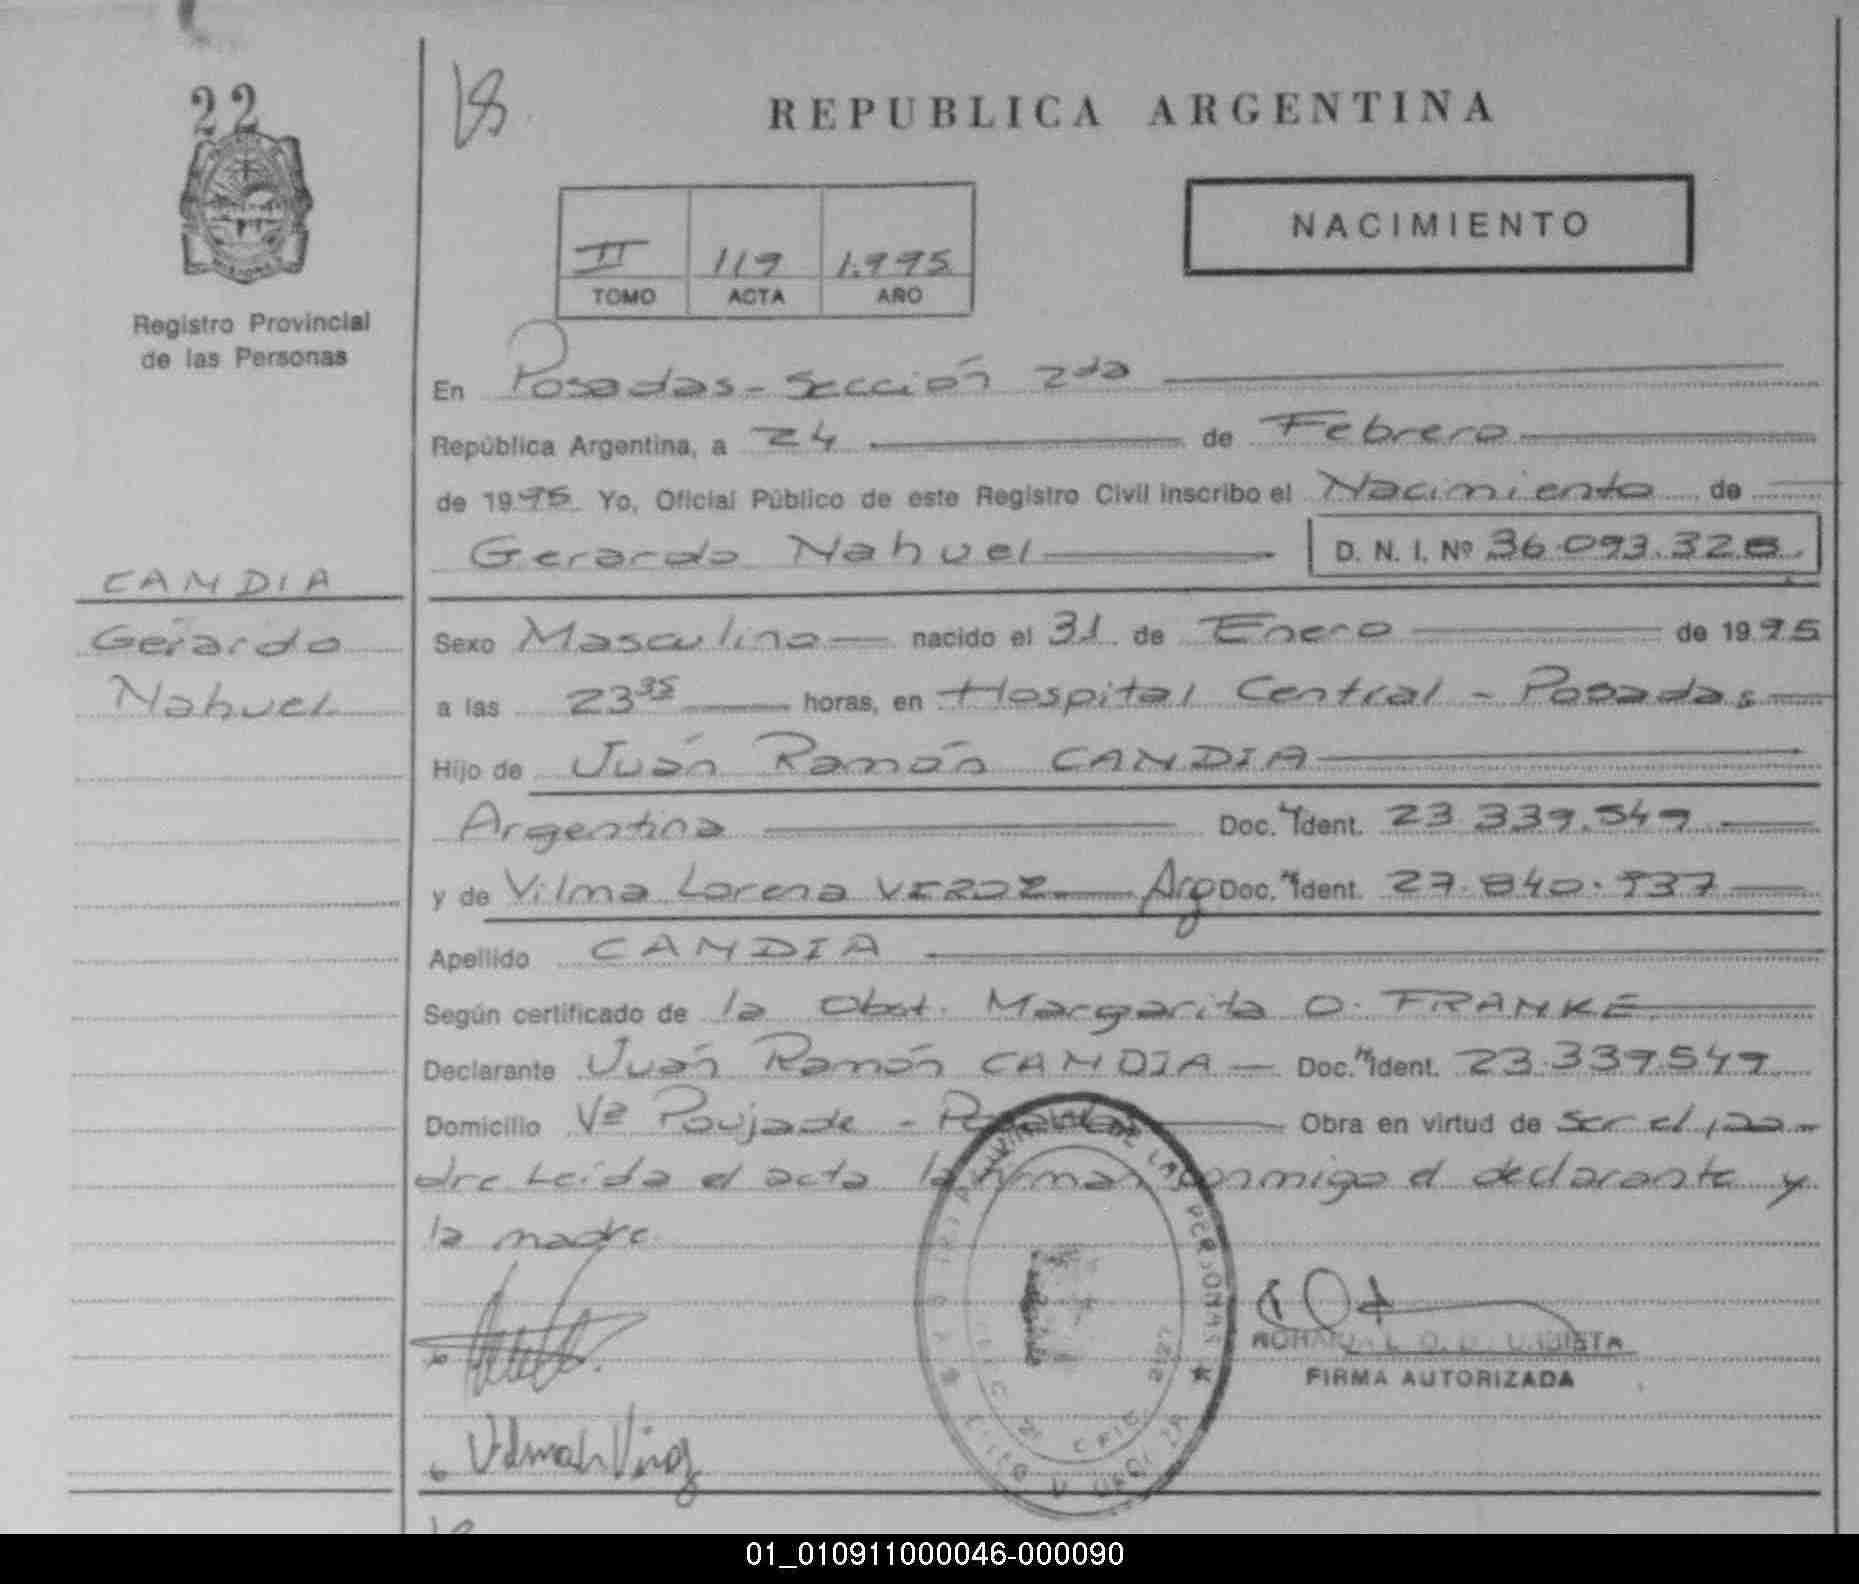 22
18
REPUBLICA ARGENTINA
NACIMIENTO
II 119 1.995
TOMO ACTA AÑO
Registro Provincial
de las Personas
En Posadas - Sección 2da
República Argentina, a 24 de Febrero
de 1995 Yo, Oficial Público de este Registro Civil inscribo el Nacimiento de
Gerardo Nahuel D. N. I. Nº 36.093.328
CANDIA
Gerardo
Nahuel
Sexo Masculino nacido el 31 de Enero de 1995
a las 23 35 horas, en Hospital Central - Posadas
Hijo de Juán Ramón CANDIA
Argentina Doc. Ident. 23.339.549
y de Vilma Lorena Arg Doc. Ident. 27.840.937
Apellido CANDIA
Según certificado de la Obst. Margarita O. FRANKE
Declarante Juán Ramón CANDIA Doc. Ident. 23.339.549
Domicilio Vª Poujade - Posadas Obra en virtud de ser el pa-
dre Leida el acta la firman conmigo el declarante y
la madre.
DE LAS PERSONAS
FIRMA AUTORIZADA
01_010911000046-000090